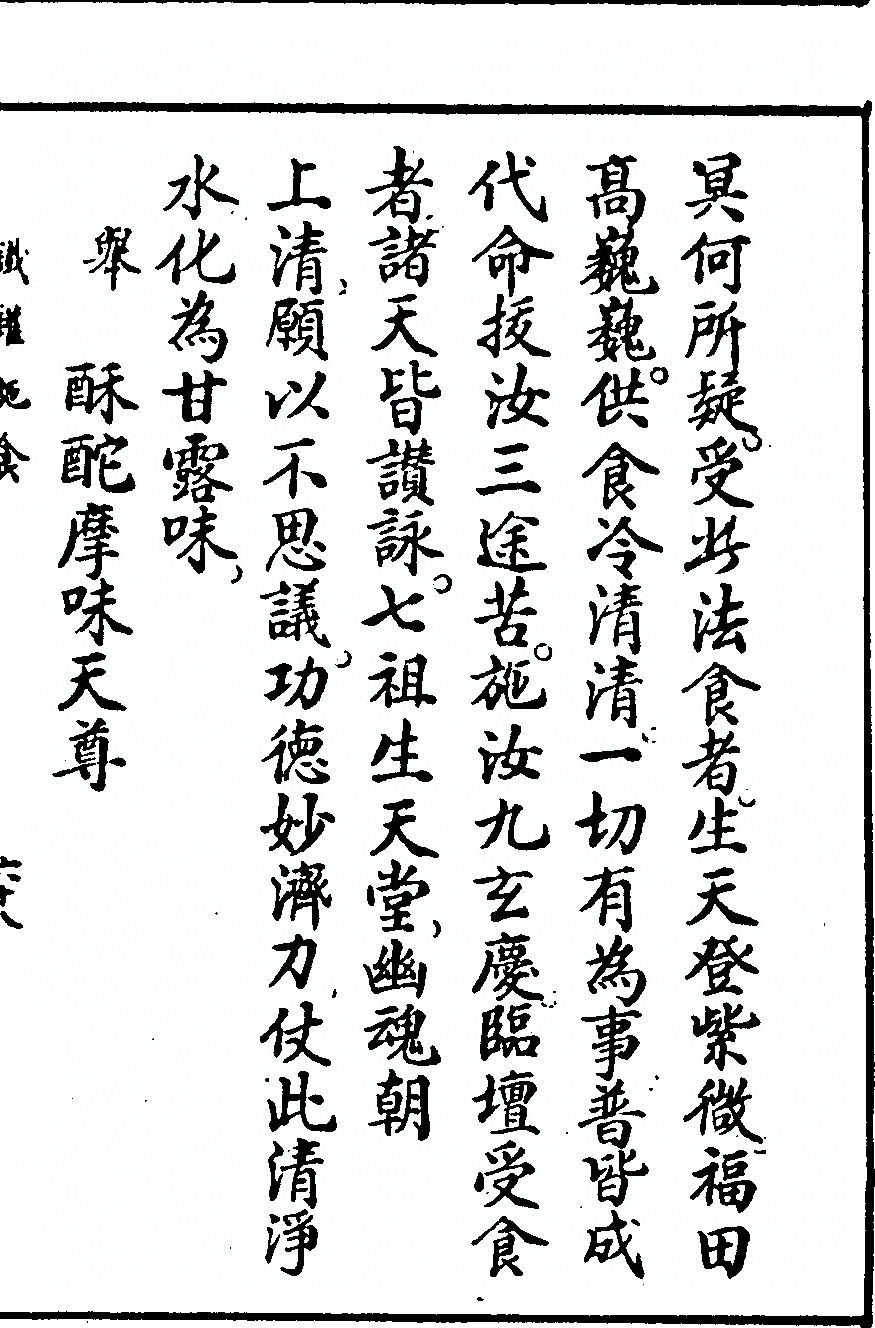 冥何所疑受此法食者生天登紫微福田
高巍巍供食冷清清一切有為事普皆成
代命拔汝三途苦施汝九玄慶臨壇受食
者諸天皆讚詠七祖生天堂幽魂朝
上清願以不思議功德妙濟力仗此清淨
水化為甘露味
舉 酥酡摩味天尊
施食 六十八